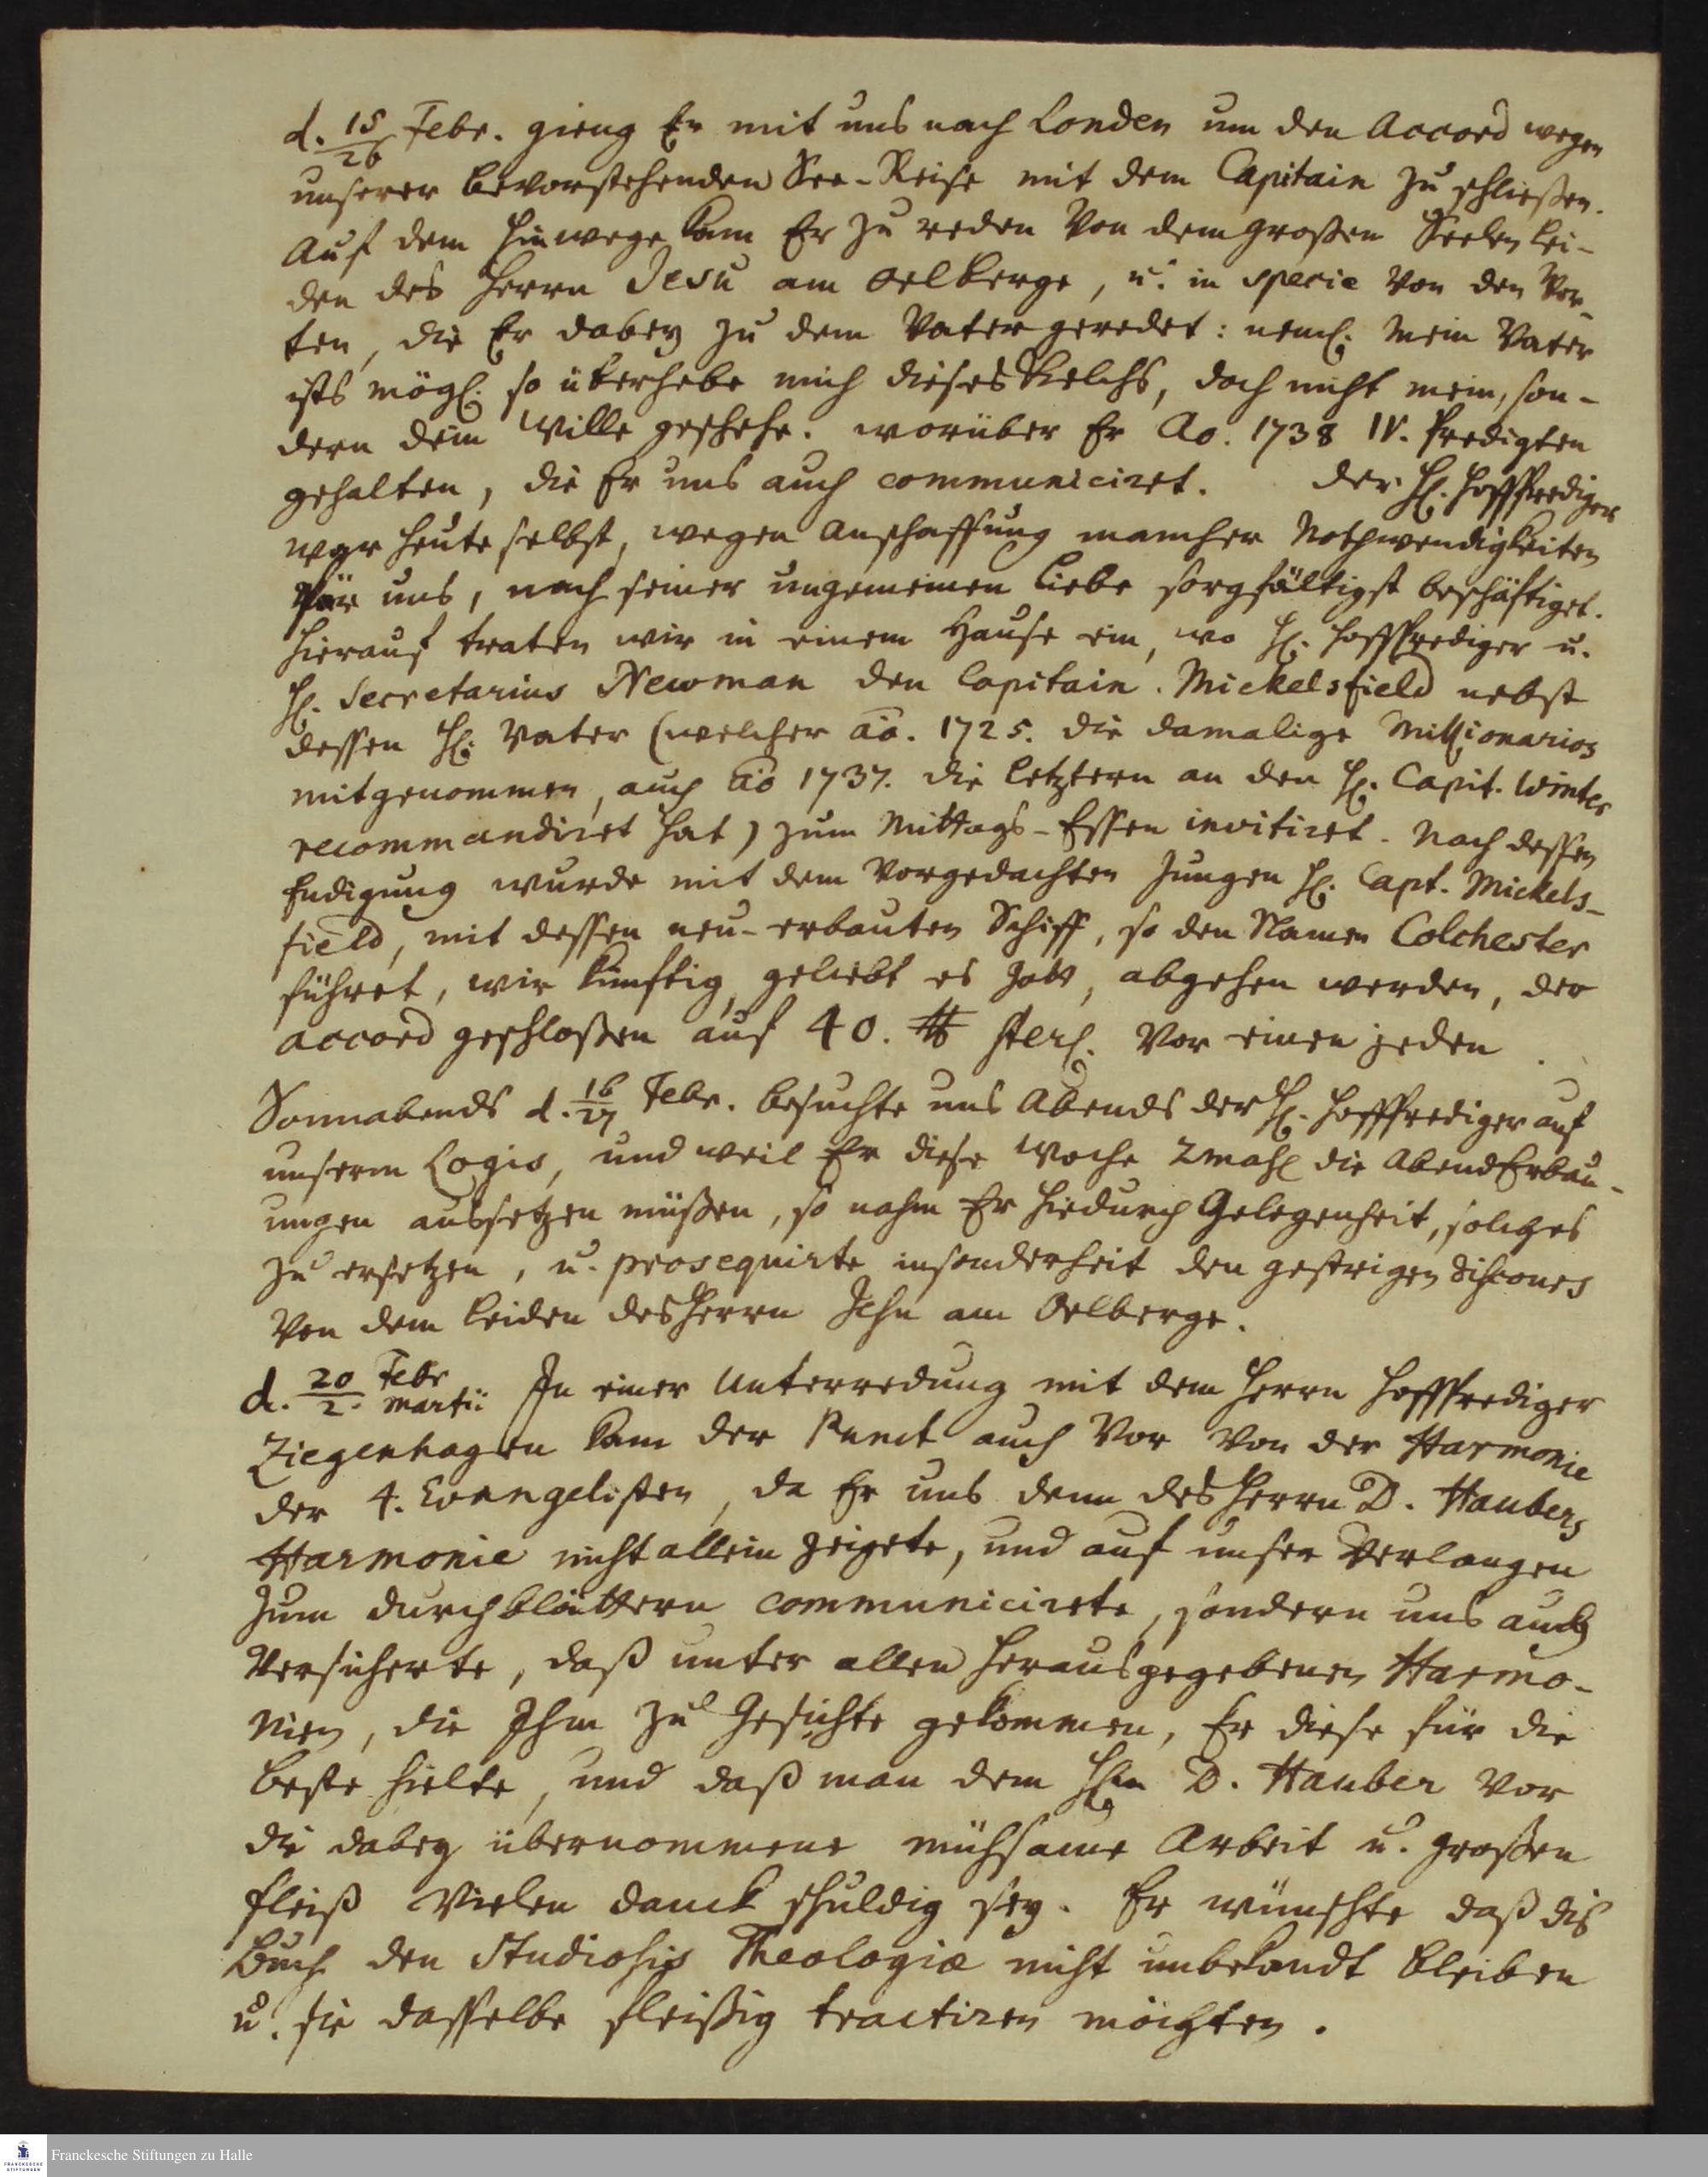 d. 15/26 Febr. gieng Er mit uns nach Londen um den Accord wegen
unserer bevorstehenden See-Reise mit dem Capitain zu schließen.
Auf dem hinwege kam Er zu reden von dem großen Seelen lei-
den des Herrn Jesu am Oelberge, u. in specie von den Wor-
ten, die Er dabey zu dem Vater geredet: neml. Mein Vater
ists mögl. so überhebe mich dieses Kelchs, doch nicht mein, son-
dern dein Wille geschehe. worüber Er Ao. 1738 IV. Predigten
gehalten, die Er uns auch communiciret. Der H. Hoffprediger
war heute selbst, wegen Anschaffung mancher Nothwendigkeiten
für uns, nach seiner ungemeinen Liebe sorgfältigst beschäftiget.
Hierauf traten wir in einem Hause ein, wo H. Hoffprediger u.
H. Secretarius Newman den Capitain. Mickelsfield nebst
dessen H. Vater (welcher ao. 1725. die damalige Missionarios
mitgenommen, auch ao 1737. die letztern an den H. Capit. Winter
recommandiret hat) zum Mittags-Essen invitiret. Nach dessen
Endigung wurde mit dem vorgedachten jungen H. Capt. Mickels-
field, mit dessen neu-erbauten Schiff, so den Namen Colchester
führet, wir künftig, geliebt es Gott, abgehen werden, der
accord geschloßen auf 40. ℔ sterl. vor einen jeden.
Sonnabends d. 16/27 Febr. besuchte uns Abends der H. Hoffprediger auf
unserm Logis, und weil Er diese Woche 2mahl die AbendErbau-
ungen aussetzen müßen, so nahm Er hiedurch Gelegenheit, solches
zu ersetzen, u. prosequirte insonderheit den gestrigen discours
von dem Leiden des Herrn Jesu am Oelberge.
d. 20 Febr/2. Martii In einer Unterredung mit dem Herrn Hoffprediger
Ziegenhagen kam der Punct auch vor von der Harmonie
der 4. Evangelisten, da Er uns denn des Herrn D. Haubers
Harmonie nicht allein zeigete, und auf unser Verlangen
zum durchblättern communicirete, sondern uns auch
versicherte, daß unter allen herausgegebenen Harmo-
nien, die Ihm zu Gesichte gekommen, Er diese für die
beste hielte, und daß man dem Hrn D. Hauber vor
die dabey übernommene mühsame Arbeit u. großen
Fleiß vielen danck schuldig sey. Er wünschte daß dis
Buch den Studiosis Theologiæ nicht unbekandt bleiben
u. sie dasselbe fleißig tractiren möchten.
Franckesche Stiftungen zu Halle
FRANCKESCHE
STIFTUNGEN